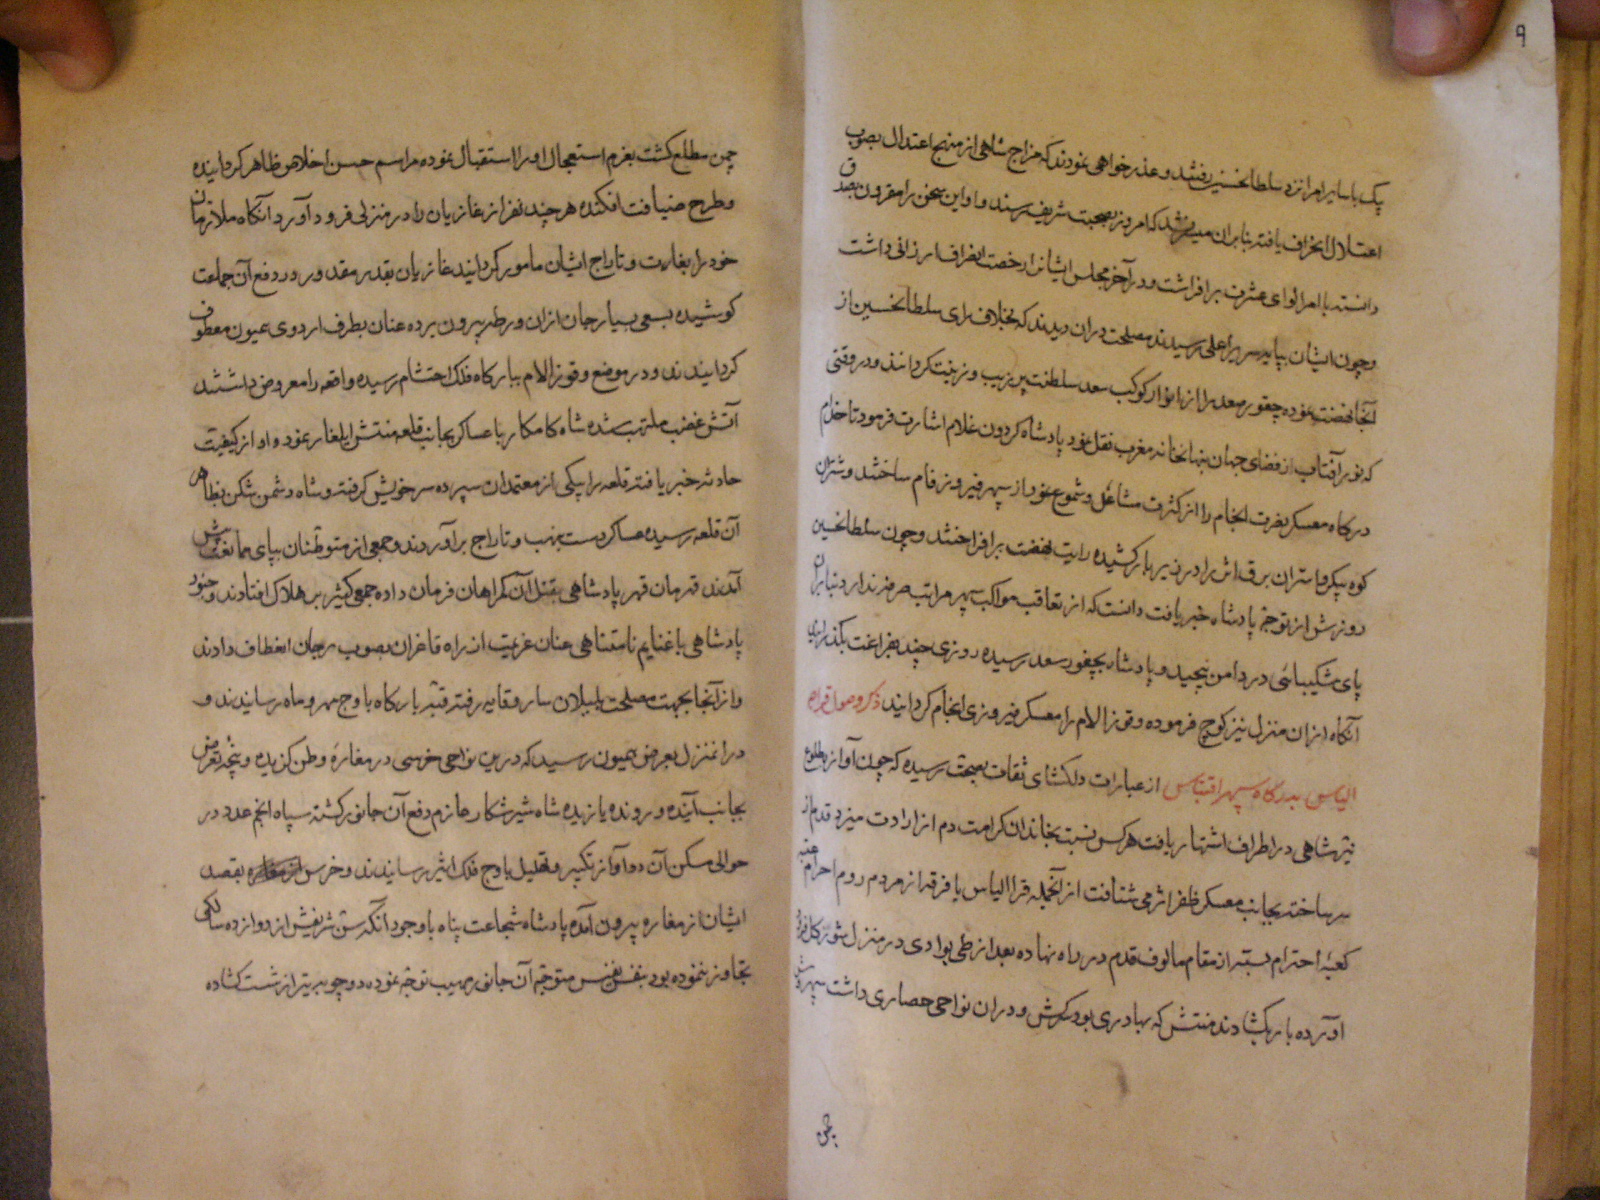 ۹
پک با سایر امرا نزد سلطانحسین رفتند و عذرخواهی نمودند که مزاج شاهی از منهج اعتدال بصوب
اعتلال انحراف یافته بنابران میسر نشد که امروز بصحبت شریف رسند و او این سخن را مقرون بصدق
دانسته با امرا لوای عشرت برافراشت و در آخر مجلس ایشانرا رخصت انصراف ارزانی داشت
و چون ایشان بپایه سریر اعلی رسیدند مصلحت دران دیدند که بخلاف رای سلطانحسین از
آنجا نهضت نموده چقور سعد را از انوار کوکب سعد سلطنت پر زیب و زینت گردانند و در وقتی
که نور آفتاب از فضای جهان بنهانخانه مغرب نقل نمود پادشاه گردون غلام اشارت فرمود تا خدام
درگاه معسکر نصرت انجام را از کثرت مشاعل و شموع نمودار سپهر فیروزه فام ساختند و شتران
کوه پیکر و استران برق اثر را در زیر بار کشیده رایت نهضت برافراختند و چون سلطانحسین
روز از توجه پادشاه خبر یافت دانست که از تعاقب مواکب سپهر مراتب صرفه ندارد بنابران
پای شکیبائی در دامن پیچید و پادشاه بچقور سعد رسیده روزی چند بفراغت بگذرانید
آنگاه ازان منزل نیز کوچ فرموده وقوزالام را معسکر فیروزی انجام گردانید ذکر وصول قراجه
الیاس بدرگاه سپهر اقتباس از عبارات دلگشای ثقات بصحت رسیده که چون آوازه طلوع
نیر شاهی در اطراف اشتهار یافت هر کس نسبت بخاندان کرامت دم از ارادت میزد قدم از
سر ساخته بجانب معسکر ظفر اثر می شتافت از آنجمله قرا الیاس با فرقه از مردم روم احرام عتبه
کعبه احترام بسته از مقام مالوف قدم در راه نهاده بعد از طی بوادی در منزل شوره کل فرود
آورده بار بگشادند منتش که بهادری بود سرکش و دران نواحی حصاری داشت سپهروش
چمن مطلع گشت بعزم استعجال او را استقبال نموده مراسم حسن اخلاص ظاهر گردانیده
و طرح ضیافت افکنده هر چند نفر از غازیان را در منزلی فرود آورد آنگاه ملازمان
خود را بغارت و تاراج ایشان مامور گردانید غازیان بقدر مقدور در دفع آن جماعت
کوشیده بسعی بسیار جان ازان ورطه بیرون برده عنان بطرف اردوی همیون معطوف
گردانیدند و در موضع وقوزالام ببارگاه فلک احتشام رسیده واقعه را معروض داشتند
آتش غضب ملتهب شده شاه کامکار با عساکر بجانب قلعه منتش ایلغار نمود و او از کیفیت
حادثه خبر یافته قلعه را بیکی از معتمدان سپرده سر خویش گرفت و شاه دشمن شکن بظاهر
آن قلعه رسیده عساکر دست بنهب و تاراج برآوردند و جمعی از متوطنان بپای ممانعت پیش
آمدند قهرمان قهر پادشاهی بقتل آن گمراهان فرمان داده جمع کثیر بر هلاک افتادند و جنود
پادشاهی با غنایم نامتناهی عنان عزیمت از راه قاغزان بصوب ترجان انعطاف دادند
و از آنجا بجهت مصلحت بییلاق ساروقایه رفته قبه بارگاه باوج مهر و ماه رسانیدند و
درانمنزل بعرض همیون رسید که درین نواحی خرسی در مغارهٔ وطن گزیده و پنجهٔ تعرض
بجانب آینده و رونده یازیده شاه شیر شکار جازم دفع آن جانور گشته سپاه انجم عدد در
حوالی مسکن آن دد آواز تکبیر و تهلیل باوج فلک اثیر رسانیدند و خرس بقصد
ایشان از مغاره بیرون آمده پادشاه شجاعت پناه باوجود آنکه سن شریفش از دوازده سالگی
تجاوز ننموده بود بنفس نفیس متوجه آن جانور مهیب توجه نموده و چوبه تیر از شست گشاده
چمن